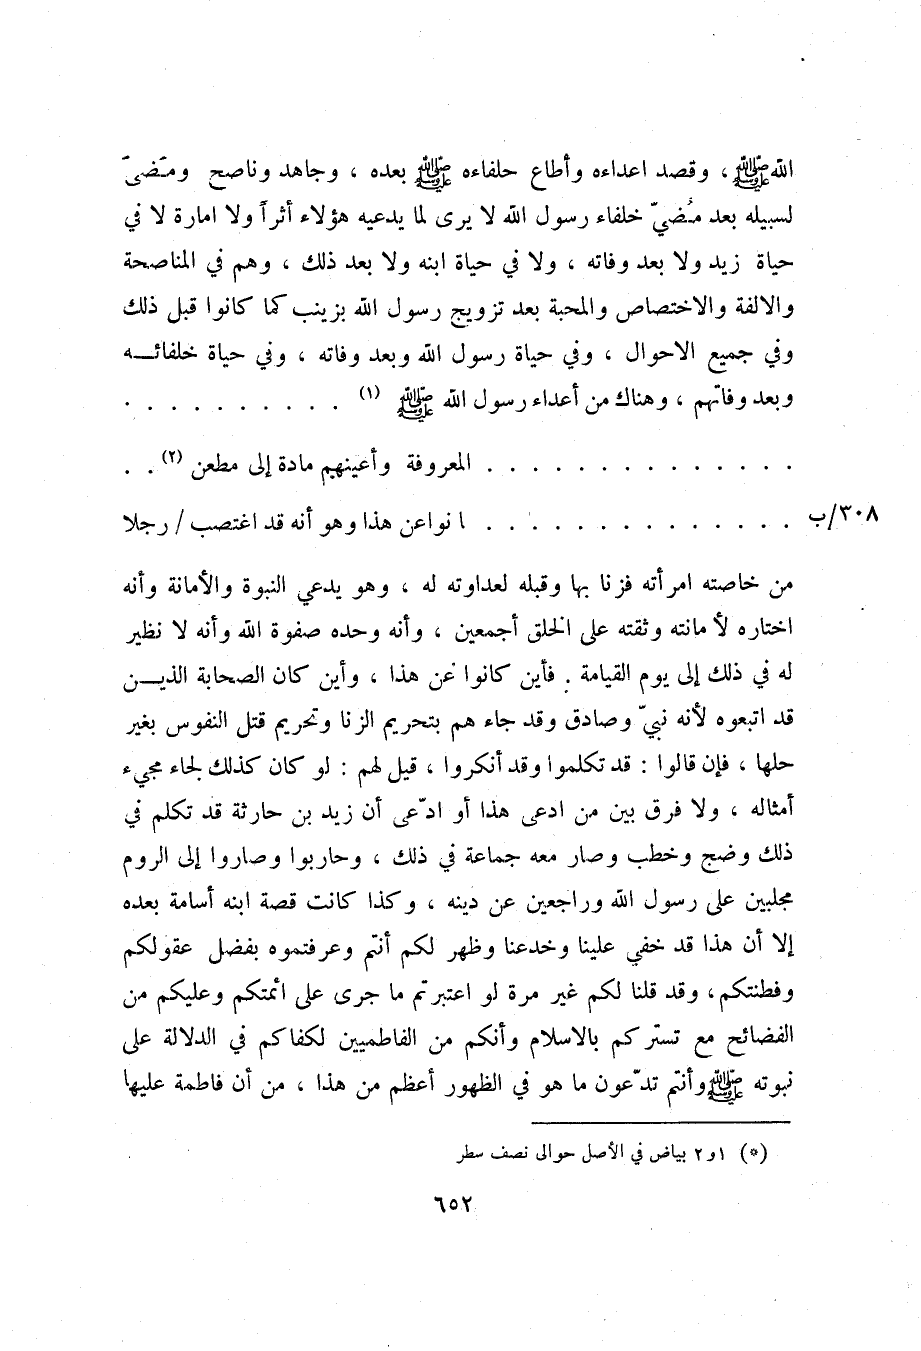 الله ﷺ ، وقصد اعداءه وأطاع حلفاءه ﷺ بعده ، وجاهد وناصح ومَضيّ
لسبيله بعد مُضيّ خلفاء رسول الله لا يرى لما يدعيه هؤلاء أثراً ولا امارة لا في
حياة زيد ولا بعد وفاته ، ولا في حياة ابنه ولا بعد ذلك ، وهم في المناصحة
والالفة والاختصاص والمحبة بعد تزويج رسول الله بزينب كما كانوا قبل ذلك
وفي جميع الاحوال ، وفي حياة رسول الله وبعد وفاته ، وفي حياة خلفائـــه
وبعد وفاتهم ، وهناك من أعداء رسول الله ﷺ (١) . . . . . . . . . .
. . . . . . . . . . . . . . المعروفة وأعينهم مادة إلى مطعن (٢) . .
٣٠٨/ب . . . . . . . . . . . . . . ا نواعن هذا وهو أنه قد اغتصب / رجلا
من خاصته امرأته فزنا بها وقبله لعداوته له ، وهو يدعي النبوة والأمانة وأنه
اختاره لأمانته وثقته على الخلق أجمعين ، وأنه وحده صفوة الله وأنه لا نظير
له في ذلك إلى يوم القيامة . فأين كانوا عن هذا ، وأين كان الصحابة الذيـــن
قد اتبعوه لأنه نبيّ وصادق وقد جاء هم بتحريم الزنا وتحريم قتل النفوس بغير
حلها ، فإن قالوا : قد تكلموا وقد أنكروا ، قيل لهم : لو كان كذلك لجاء مجيء
أمثاله ، ولا فرق بين من ادعى هذا أو ادّعى أن زيد بن حارثة قد تكلم في
ذلك وضج وخطب وصار معه جماعة في ذلك ، وحاربوا وصاروا إلى الروم
مجلبين على رسول الله وراجعين عن دينه ، وكذا كانت قصة ابنه أسامة بعده
إلا أن هذا قد خفي علينا وخدعنا وظهر لكم أنتم وعرفتموه بفضل عقولكم
وفطنتكم، وقد قلنا لكم غير مرة لو اعتبرتم ما جرى على ائمتكم وعليكم من
الفضائح مع تستّركم بالاسلام وأنكم من الفاطميين لكفاكم في الدلالة على
نبوته ﷺ وأنتم تدّعون ما هو في الظهور أعظم من هذا ، من أن فاطمة عليها
(*) ١و٢ بياض في الأصل حوالى نصف سطر
٦٥٢